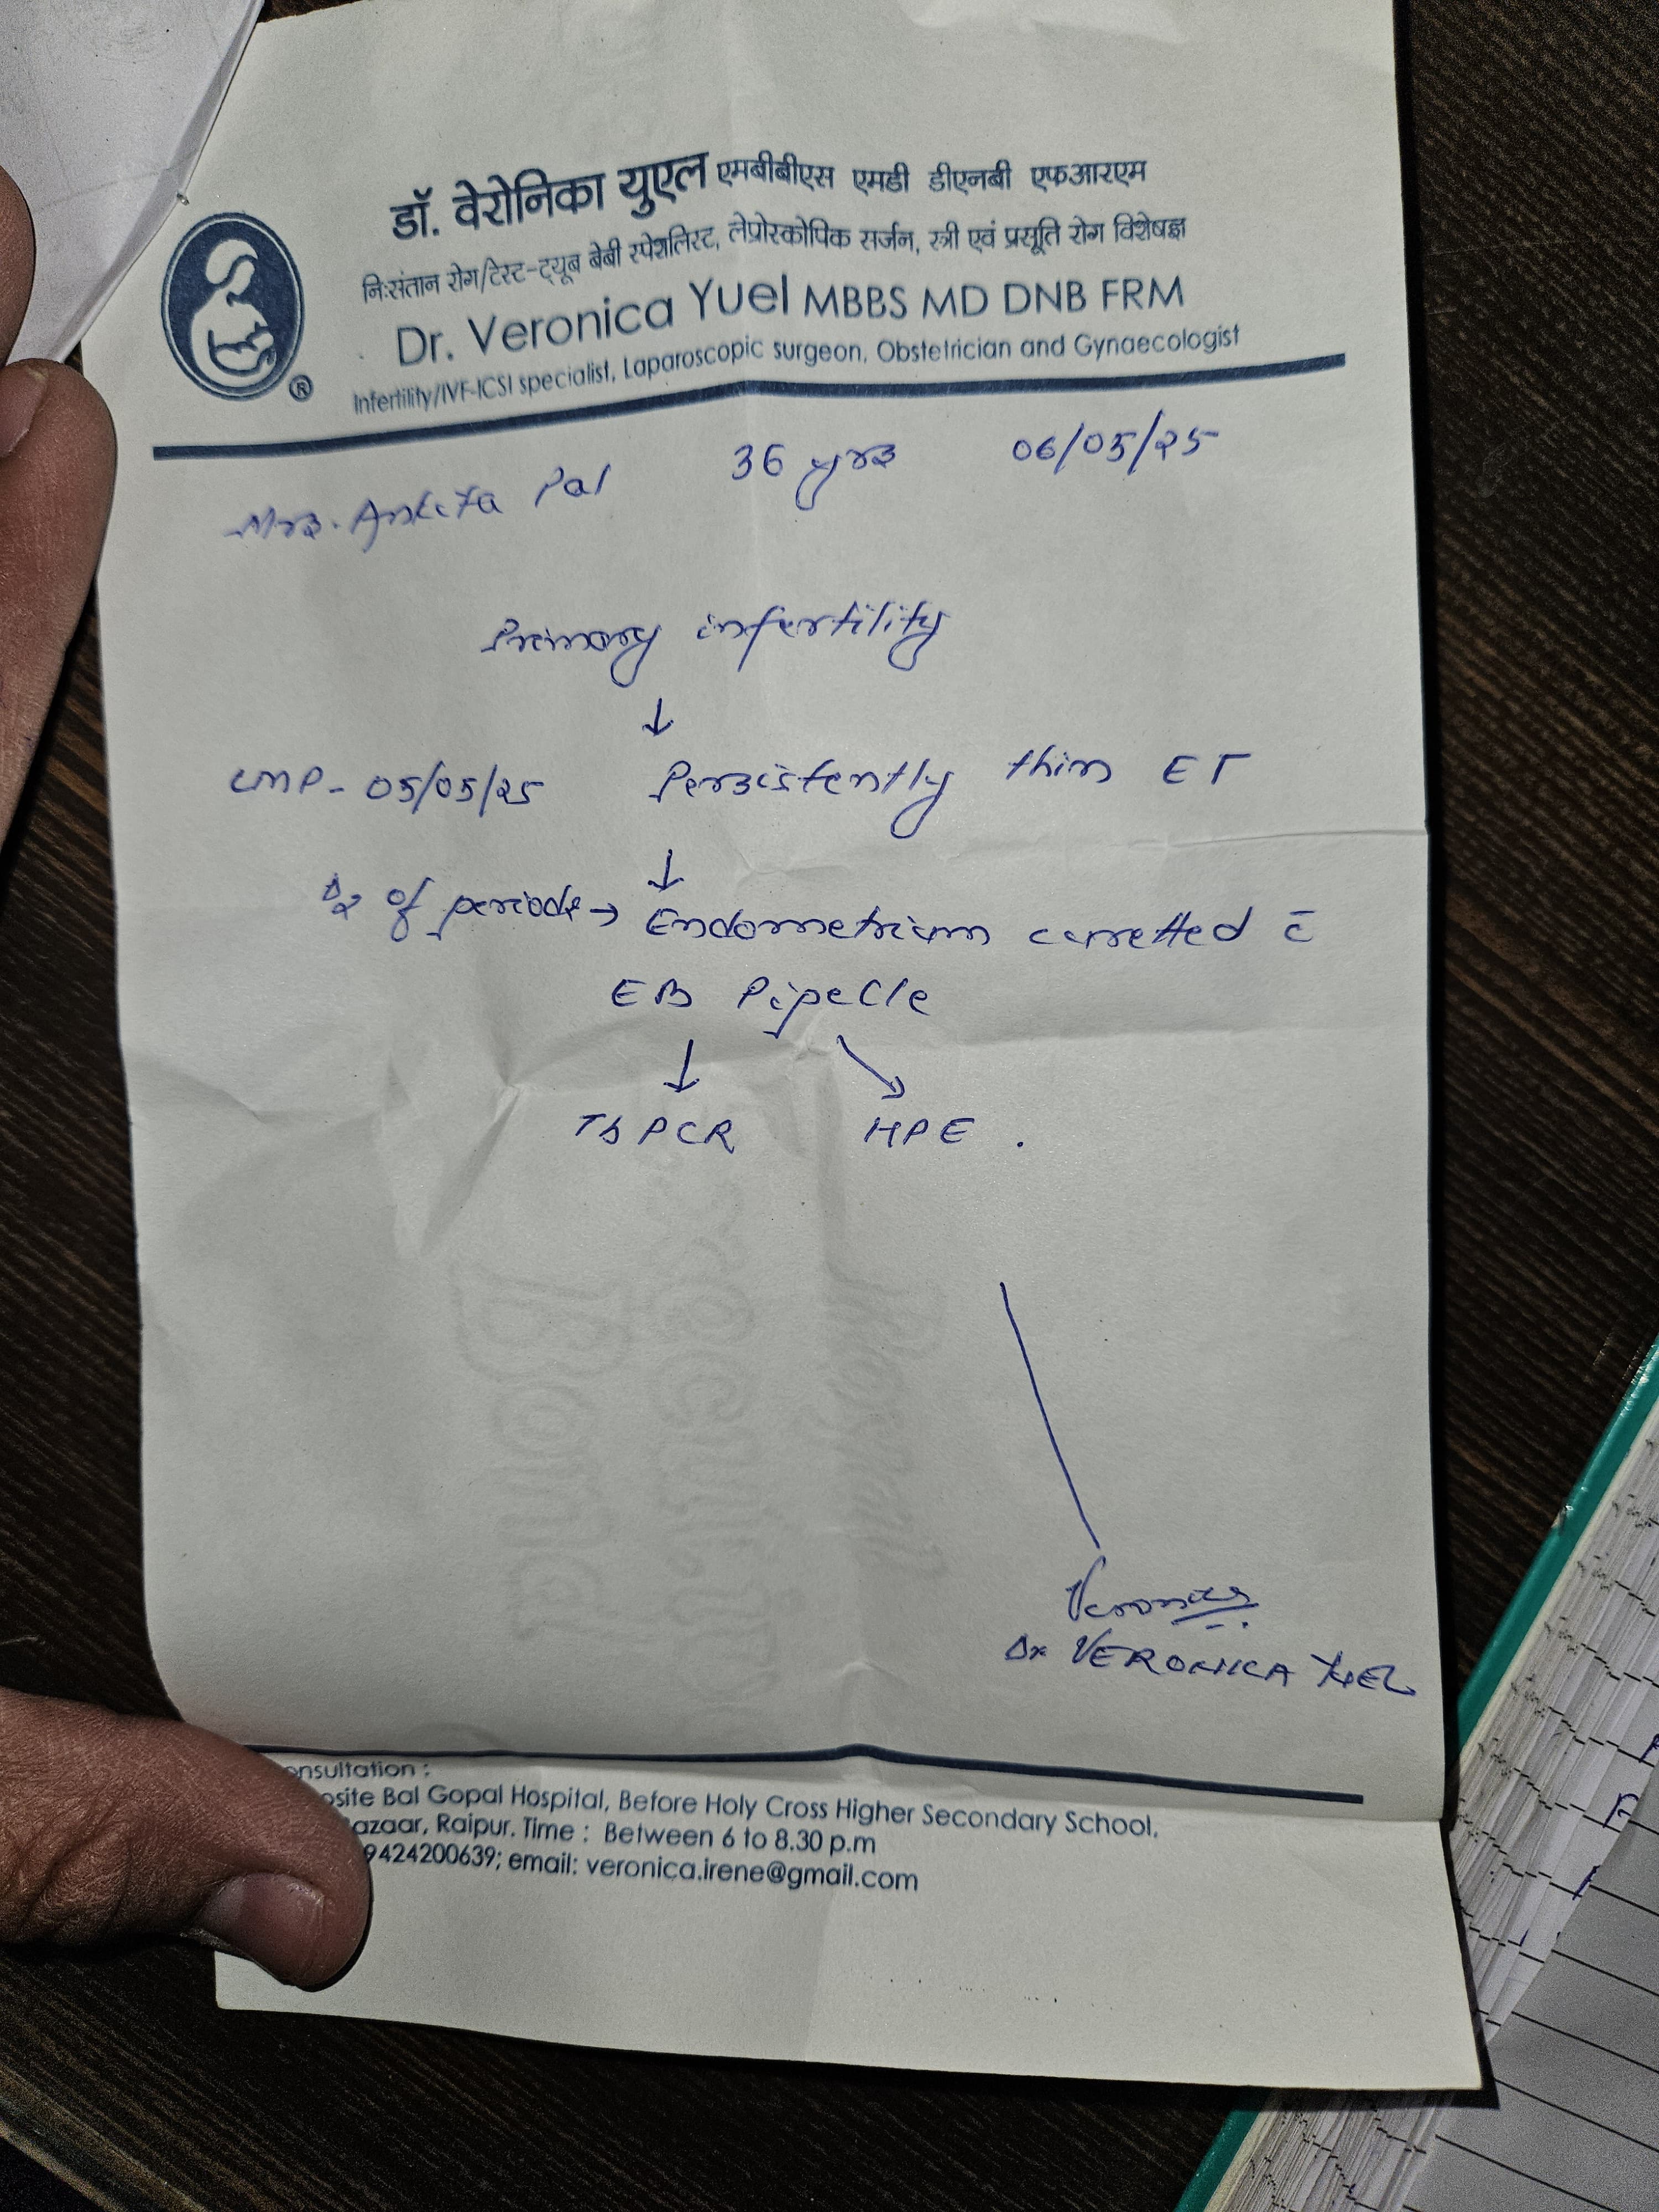 डॉ. वेरोनिका युएल एमबीबीएस एमडी डीएनबी एफआरएम
निःसंतान रोग/टेस्ट-ट्यूब बेबी स्पेशलिस्ट, लेप्रोस्कोपिक सर्जन, स्त्री एवं प्रसूति रोग विशेषज्ञ
Dr. Veronica Yuel MBBS MD DNB FRM
Infertility/IVF-ICSI specialist, Laparoscopic surgeon, Obstetrician and Gynaecologist
®
Mrs. Ankita Pal 36 yrs 06/05/25
Primary infertility
↓
LMP - 05/05/25 Persistently thin ET
↓
of periods → Endometrium curretted c̄
EB Pipelle
↓ ↘
Tb PCR HPE.
Veronica
Dr VERONICA YUEL
onsultation :
osite Bal Gopal Hospital, Before Holy Cross Higher Secondary School,
azaar, Raipur. Time : Between 6 to 8.30 p.m
9424200639; email: veronica.irene@gmail.com